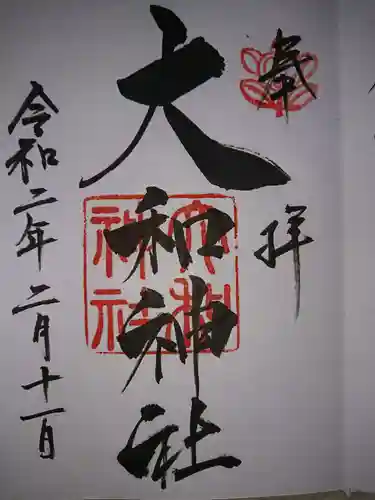 奉拝
大和神社
令和二年二月十一日
大和神社